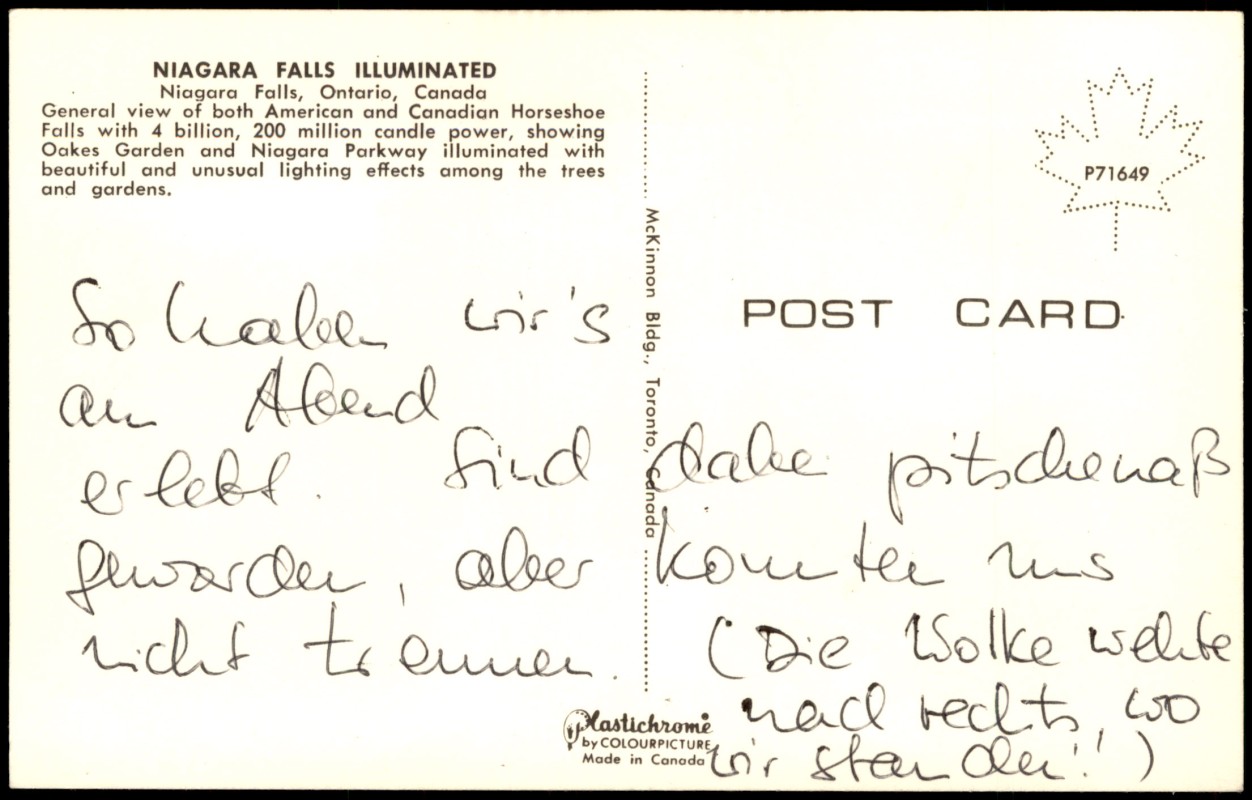 NIAGARA FALLS ILLUMINATED
Niagara Falls, Ontario, Canada
General view of both American and Canadian Horseshoe
Falls with 4 billion, 200 million candle power, showing
Oakes Garden and Niagara Parkway illuminated with
beautiful and unusual lighting effects among the trees
and gardens.
P71649
POST CARD
McKinnon Bldg., Toronto, Canada
So haben wir's
am Abend
erlebt. Sind dabei pitschenaß
geworden, aber konnten uns
nicht trennen. (Die Wolke wehte
nach rechts, wo
wir standen!!)
Plastichrome
by COLOURPICTURE
Made in Canada